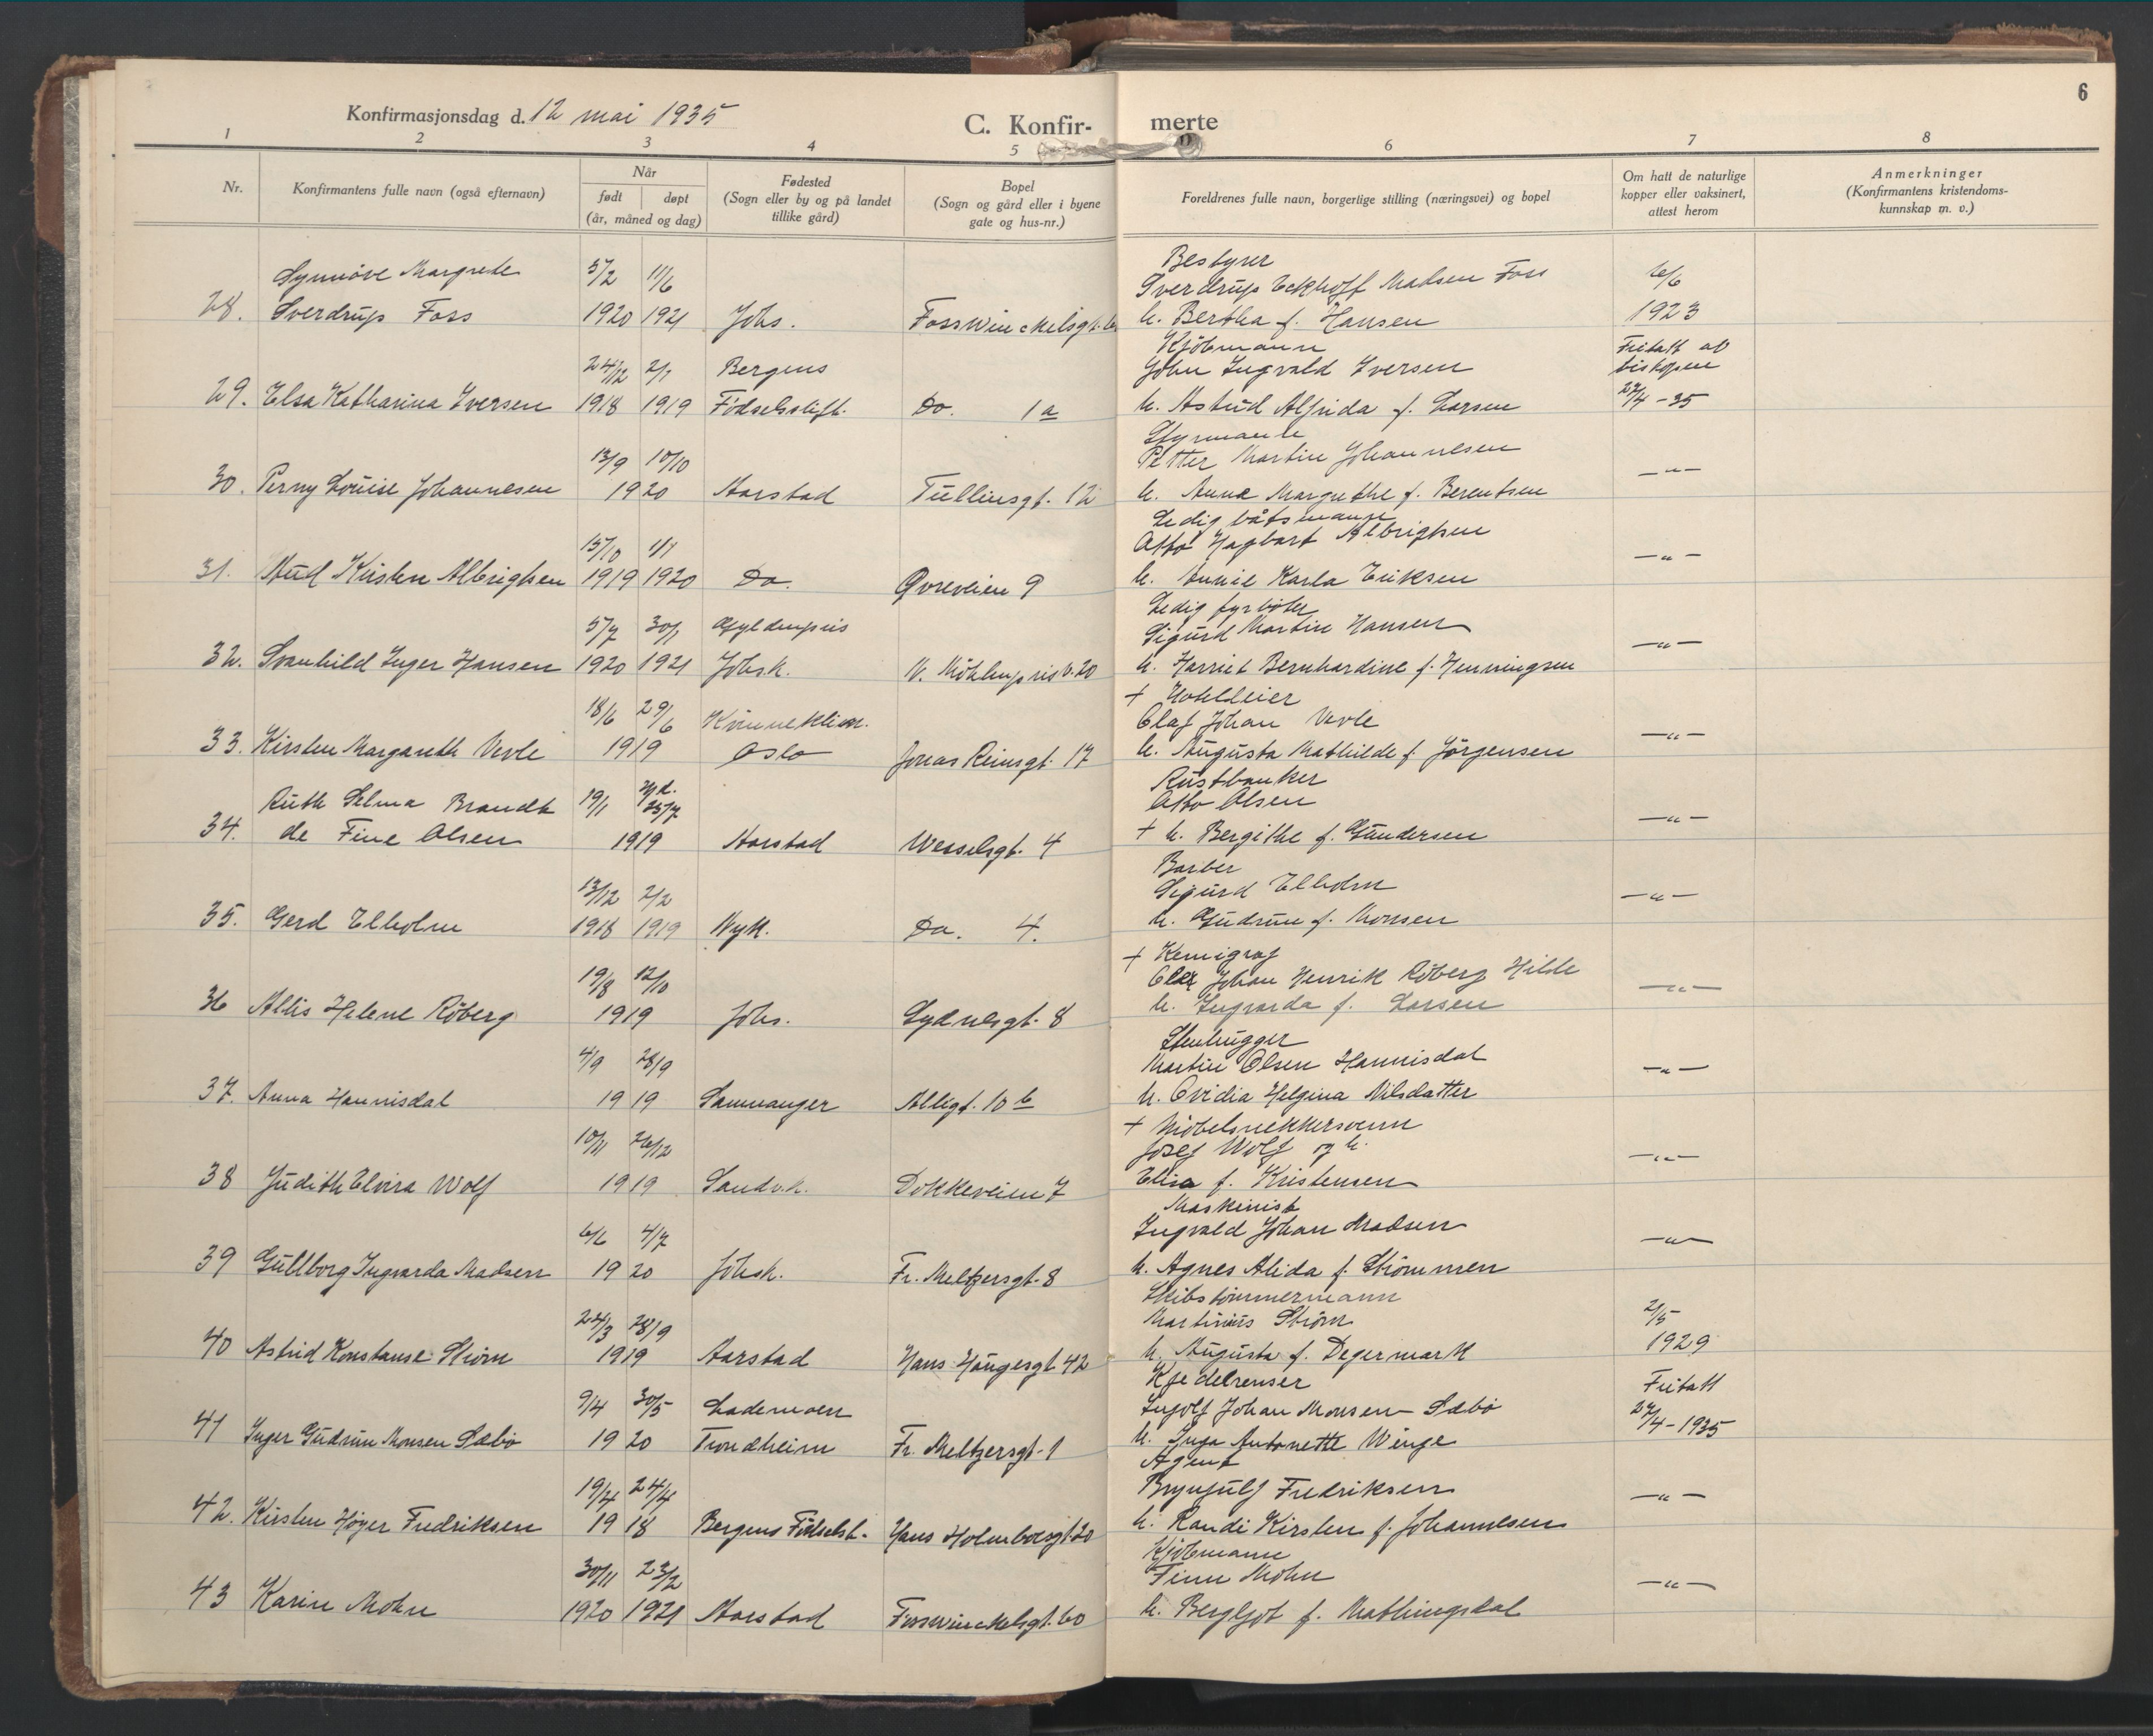 6
Konfirmasjonsdag d. 12 mai 1935
C. Konfir- merte
1 2 3 4 5 6 7 8
Nr.
Konfirmantens fulle navn (også efternavn)
Når
født døpt
(år, måned og dag)
Fødested
(Sogn eller by og på landet
tillike gård)
Bopel
(Sogn og gård eller i byene
gate og hus-nr.)
Foreldrenes fulle navn, borgerlige stilling (næringsvei) og bopel
Om hatt de naturlige
kopper eller vaksinert,
attest herom
Anmerkninger
(Konfirmantens kristendoms-
kunnskap m. v.)
Synnöve Margrete 5/2 11/6 Bestyrer
Sverdrup Eckhoff Madsen Foss
28. Sverdrup Foss 1920 1921 Johs. Fosswinckelsgt. h. Bertha f. Hansen 1923
24/12 2/1 Bergens Kjöbmann Fritatt av
John Ingvald Iversen biskopen
29. Elsa Katharina Iversen 1918 1919 Födselsstift. Do. 1a h. Astrid Alfrida f. Larsen 27/4-35
13/9 10/10 Styrmann
Petter Martin Johannesen
30. Perny Louise Johannesen 1920 Aarstad Tullinsgt. 12 h. Anna Margrethe f. Berentsen -"-
15/10 1/1 Ledig båtsmann
Otto Hagbart Albrigtsen
31. Aud Kirsten Albrigtsen 1919 1920 Do. Øvreveien 9 h. Annie Karla Eriksen -"-
5/7 30/1 Gyldenpris Ledig fyrböter
Sigurd Martin Hansen
32. Svanhild Inger Hansen 1920 1921 Johsk. N. Möhlenprisv. 20 h. Harriet Bernhardine f. Henningsen -"-
18/6 29/6 Kvinneklin. + Hotelleier
Olaf Johan Vevle
33. Kirsten Margareth Vevle 1919 Oslo Jonas Reinsgt. 17 h. Augusta Mathilde f. Jörgensen -"-
Ruth Selma Brandt 19/1 25/7 Rustbanker
Otto Olsen
34. de Fine Olsen 1919 Aarstad Wesselsgt. 4 + h. Bergithe f. Gundersen -"-
13/12 2/2 Barber
Sigurd Elholm
35. Gerd Elholm 1918 1919 Nyk. Do. 4. h. Gudrun f. Monsen -"-
19/8 12/10 + Kemigraf
Johan Henrik Röberg Hilde
36 Allis Helene Röberg 1919 Johs. Sydnesgt. 8 h. Ingvarda f. Larsen -"-
4/9 28/9 Stenhugger
Martin Olsen Hannisdal
37. Anna Hannisdal 1919 Samnanger Allégt. 10 b h. Ovidia Helgina Nilsdatter -"-
10/11 26/12 + Möbelsnekkersvenn
Josef Wolf og h.
38 Judith Elvira Wolf 1919 Sandv.k. Dokkeveien 7 Elisa f. Kristensen -"-
6/6 4/7 Maskinist
Ingvald Johan Madsen
39 Gullborg Ingvarda Madsen 1920 Johsk. Fr. Meltzersgt. 8 h. Agnes Alida f. Strömmen -"-
24/3 28/9 Skibstömmermann
Martinius Ström 2/5
40 Astrid Konstanse Ström 1919 Aarstad Hans Haugesgt. 42 h. Augusta f. Degermark 1929
9/4 30/5 Lademoen Kjedelrenser Fritatt
Ingolf Johan Monsen Sæbö
41 Inger Gudrun Monsen Sæbö 1920 Trondheim Fr. Meltzersgt. 1 h. Inga Antonette Winge 27/4-1935
19/4 24/4 Agent
Brynjulf Fredriksen
42. Kirsten Høyer Fredriksen 1918 Bergens Födselsst. Hans Holmboesgt. 20 h. Randi Kirsten f. Johannesen -"-
30/11 23/2 Kjöbmann
Finn Mohn
43 Karin Mohn 1920 1921 Aarstad Fosswinckelsgt. 60 h. Bergljot f. Mathingsdal -"-